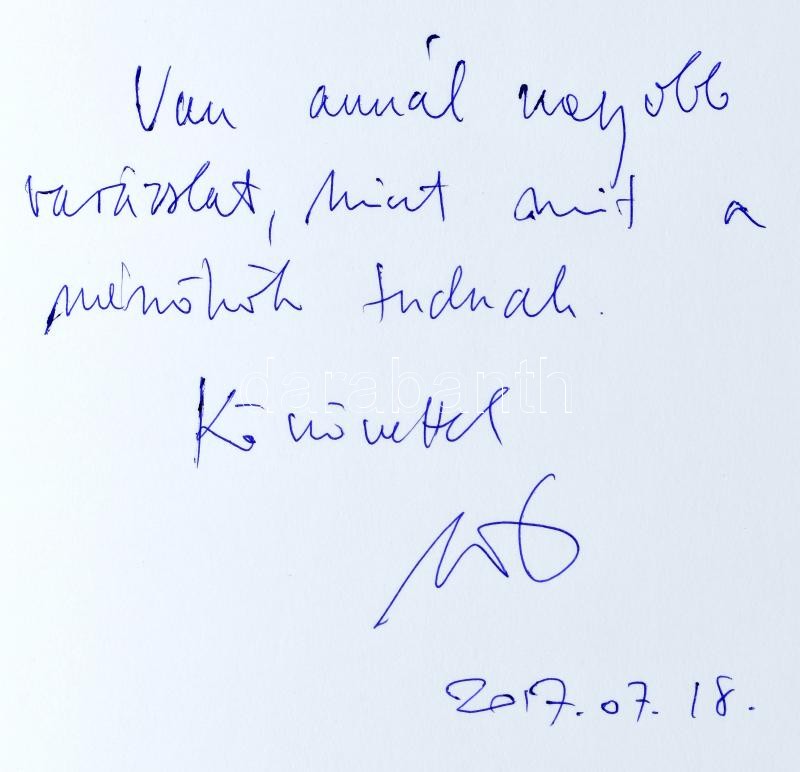 Van annál nagyobb
varázslat, mint amit a
mérnökök tudnak.
darabanth
Köszönettel
2017.07.18.